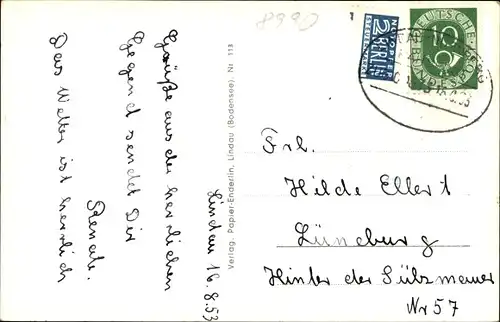 8990
1
NOTOPFER
2 BERLIN
STEUERMARKE
DEUTSCHE
10
BUNDESPOST
Lindau 16.8.53
Grüße aus der herrlichen
Gegend sendet Dir
Renate.
Das Wetter ist herrlich
Verlag. Papier-Enderlin, Lindau (Bodensee). Nr. 113
Frl.
Hilde Ellert
Lüneburg
Hinter der Sülzmauer
Nr 57